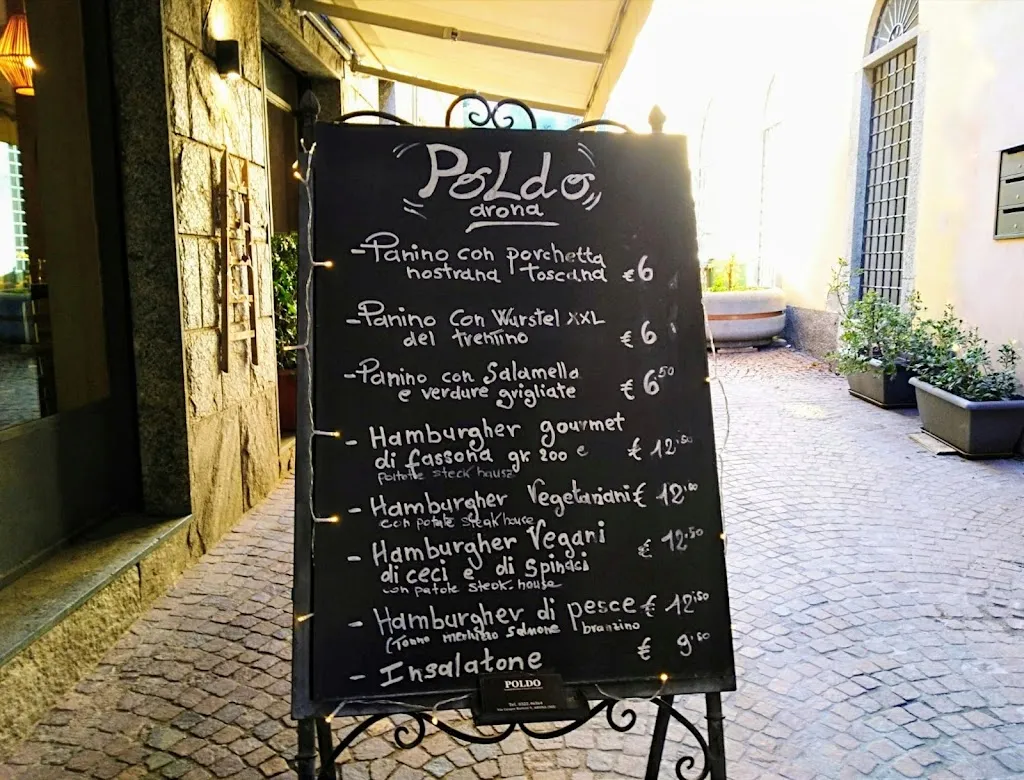 PoLdo
arona
-Panino con porchetta
nostrana Toscana €6
-Panino Con Wurstel XXL
del trentino €6
-Panino con Salamella
e verdure grigliate €6,50
- Hamburgher gourmet
di fassona gr 200 e € 12,50
patate steck hause
- Hamburgher Vegetariani € 12,00
con patate steak house
- Hamburgher Vegani
di ceci e di Spinaci € 12,50
con patate steck.house
- Hamburgher di pesce € 12,50
(Tonno merluzzo Salmone branzino
- Insalatone € 9,50
POLDO